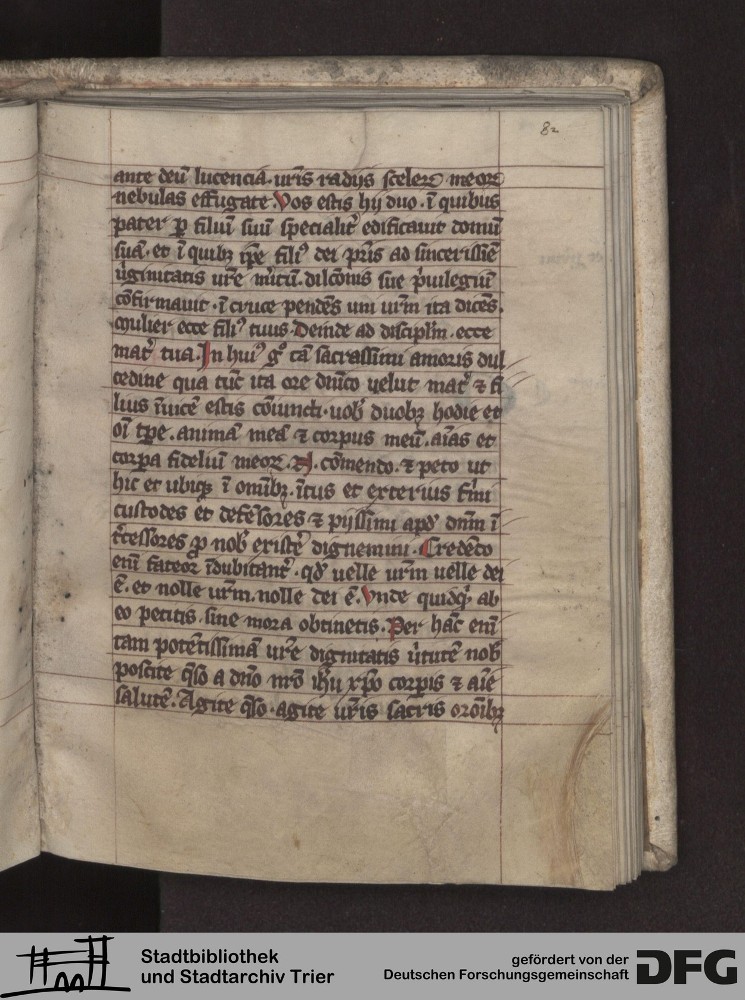 82
ante deū lucencia. vr̄is radijs sceleꝝ meoꝝ
nebulas effugate. Vos estis hij duo. ī quibus
pater ꝑ filiū suū specialit̾ edificauit domū
suā. et ī quibꝫ ip̄e filiꝰ dei pr̄is ad sincerissīe
v̾ginitatis vr̄e
cōfirmauit. ī cruce pendēs uni vr̄m ita dicēs.
Mulier ecce filiꝰ tuus. Deinde ad discipl̄m. ecce
mat̾ tua. In huiꝰ gͦ tā sacrassimi amoris dul
cedine qua tūc ita ore dn̄ico uelut mat̾ ⁊ fi
lius īuicē estis cōiuncti. uob̄ duobꝫ hodie et
oī tp̄e. animā meā ⁊ corpus meū. aīas et
corpa fideliū meoꝝ. N. cōmendo. ⁊ peto ut
hic et ubiqꝫ ī omībꝫ. ītus et exterius firmi
custodes et defēsores ⁊ pijssimi apd̾ dnm̄ ī
t̾cessores ꝓ nob̄ existe̾ dignemini. Credēdo
enī fateor īdubitant̾. qd̾ uelle vr̄m uelle dei
ē. et nolle vr̄m. nolle dei ē. Vnde quidq̾ ab
eo petitis. sine mora obtinetis. Per hāc enī
tam potētissimā vr̄e dignitatis v̾tutē nob̄
poscite q̄so a dn̄o nr̄o ih̄u xp̄o corꝑis ⁊ aīe
salutē. Agite q̄so. agite vr̄is sacris orōībꝫ
Stadtbibliothek
und Stadtarchiv Trier
gefördert von der
Deutschen Forschungsgemeinschaft
DFG